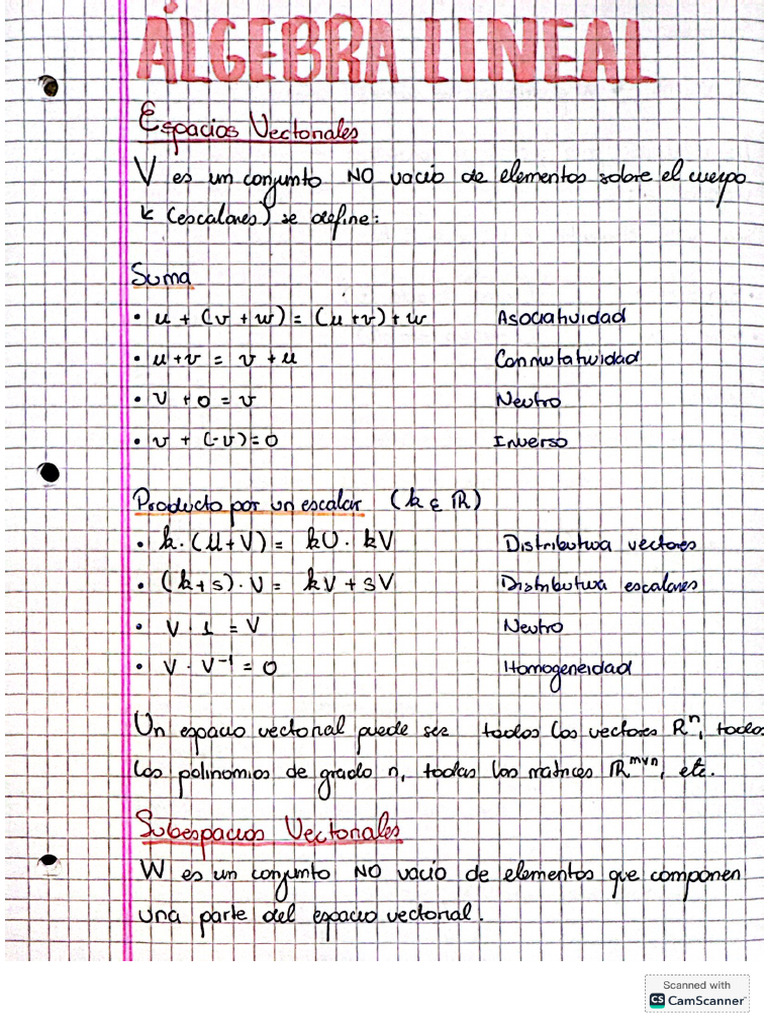 ÁLGEBRA LINEAL
Espacios Vectoriales
V es un conjunto NO vacío de elementos sobre el cuerpo
K (escalares) se define:
Suma
• u + (v + w) = (u + v) + w Asociatividad
• u + v = v + u Conmutatividad
• v + 0 = v Neutro
• v + (-v) = 0 Inverso
Producto por un escalar (k ∈ ℝ)
• k · (u + v) = kU · kV Distributiva vectores
• (k + s) · V = kV + sV Distributiva escalares
• V · 1 = V Neutro
• V · V⁻¹ = 0 Homogeneidad
Un espacio vectorial puede ser todos los vectores Rⁿ, todos
los polinomios de grado n, todas las matrices ℝᵐˣⁿ, etc.
Subespacios Vectoriales
W es un conjunto NO vacío de elementos que componen
una parte del espacio vectorial.
Scanned with
CS CamScanner